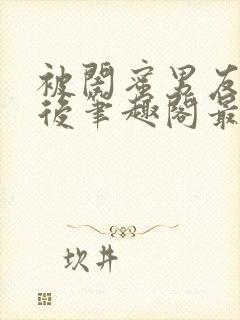 被閤蜜男友
後筆趣閣最
坎井